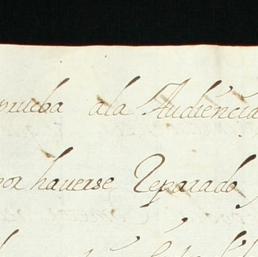 prueba ala Audiencia
por haverse Reparado